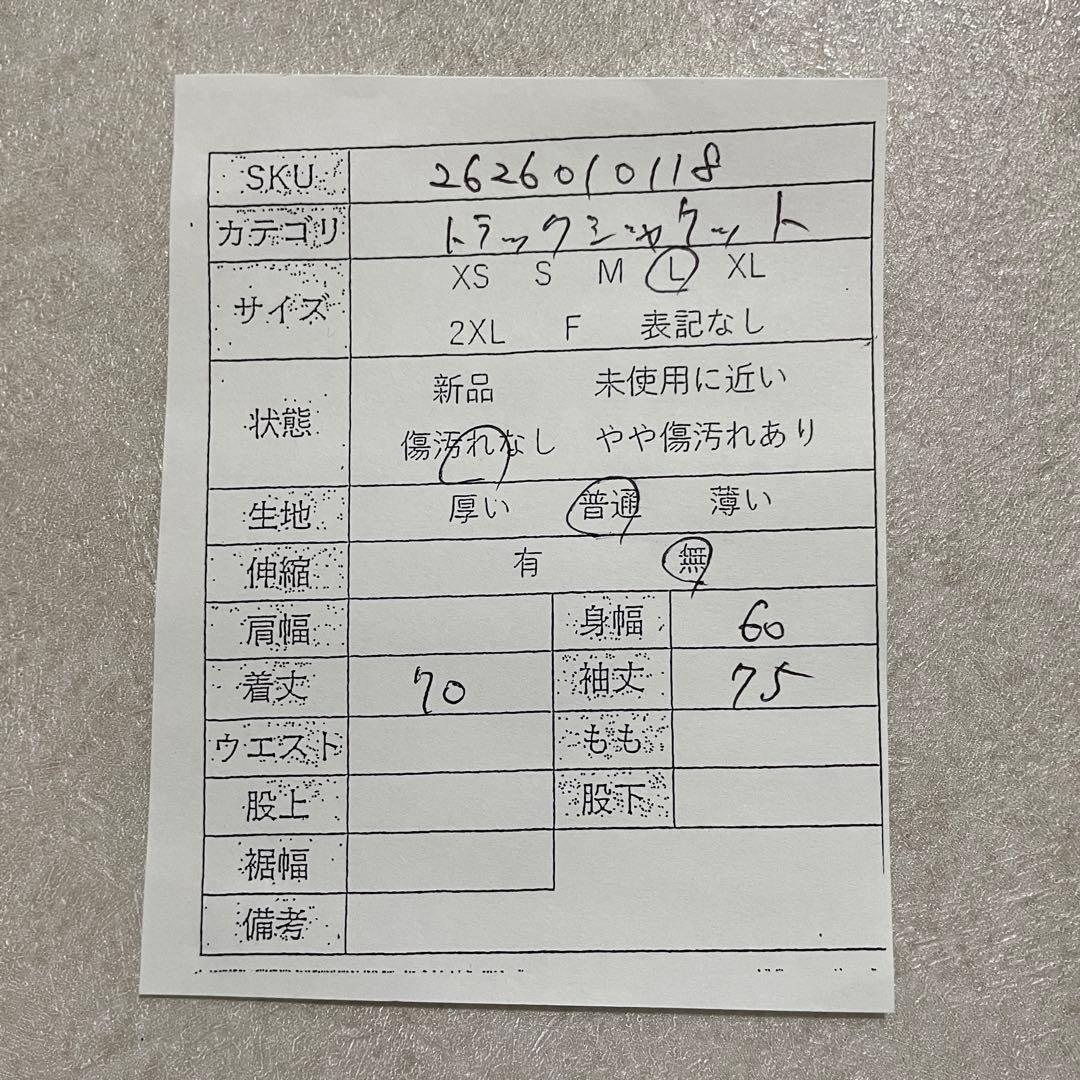 SKU 2626010118
カテゴリ トラックジャケット
サイズ XS S M L XL
2XL F 表記なし
状態 新品 未使用に近い
傷汚れなし やや傷汚れあり
生地 厚い 普通 薄い
伸縮 有 無
肩幅 身幅 60
着丈 70 袖丈 75
ウエスト もも
股上 股下
裾幅
備考